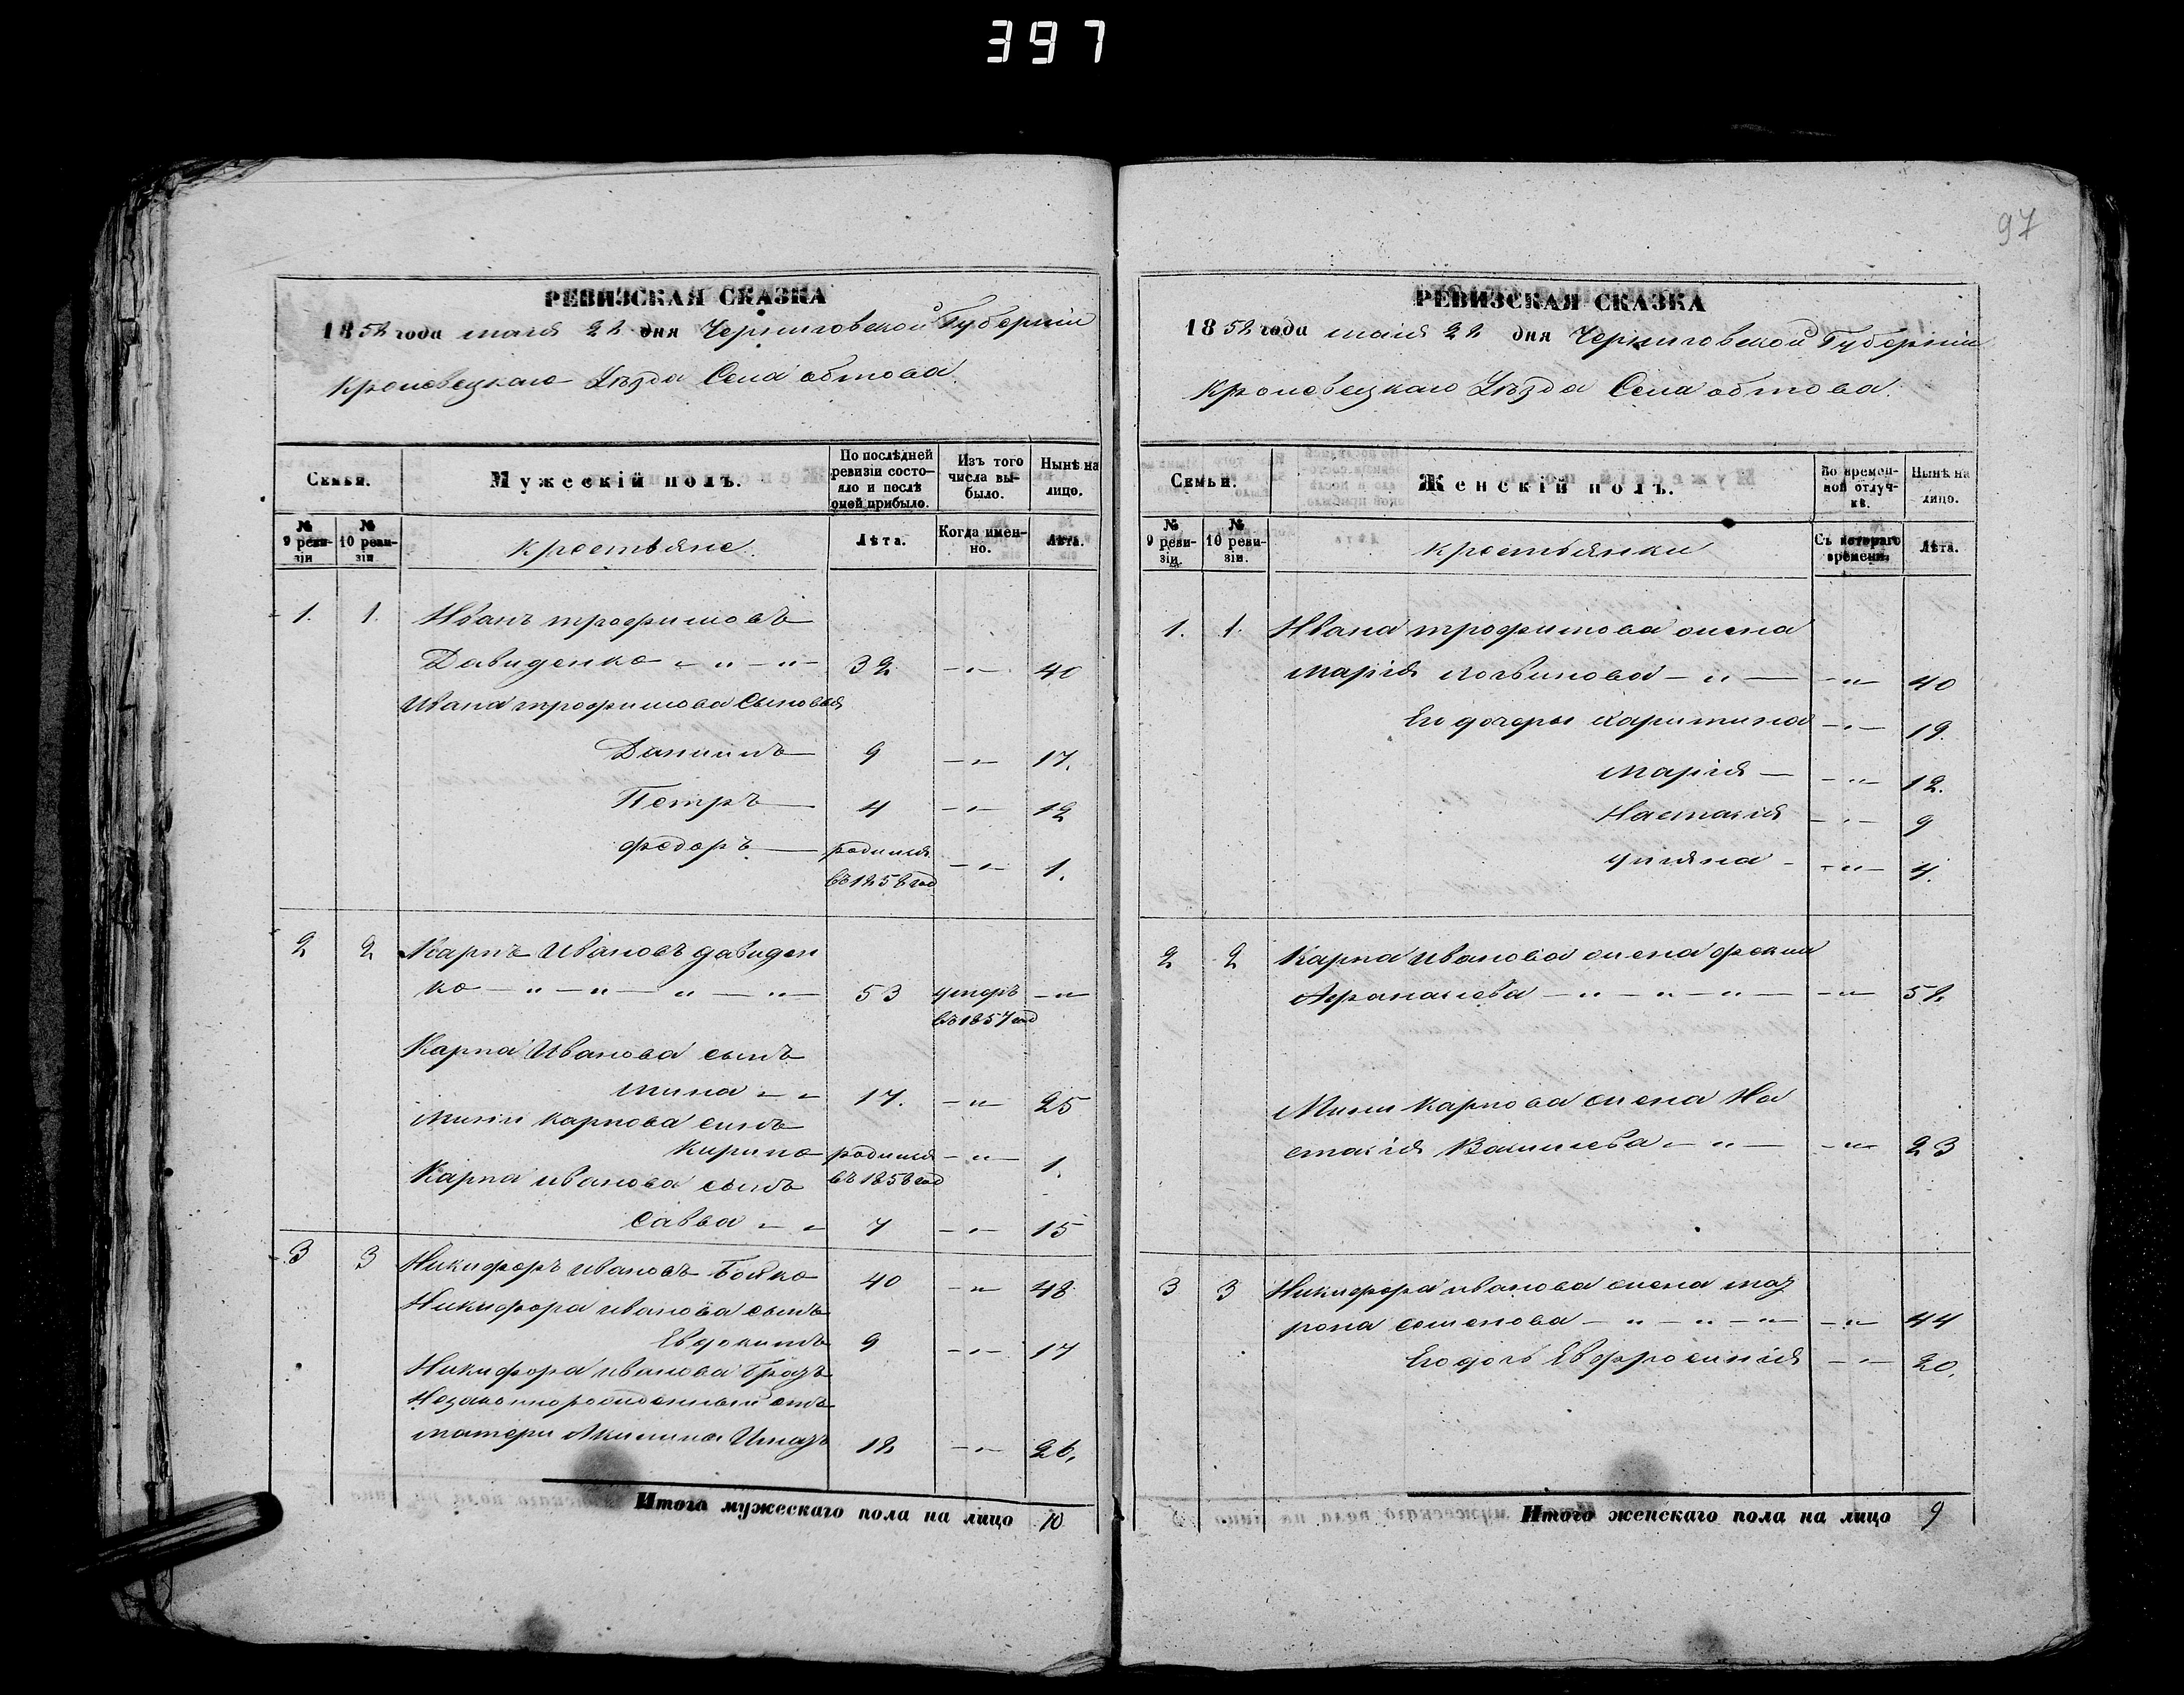 397
97
РЕВИЗСКАЯ СКАЗКА
1858 года маія 22 дня Черниговской Губерніи
Кролевецкаго Уѣзда Села обтова.
Семьи.
Мужескій полъ.
По послѣдней ревизіи состояло и послѣ оной прибыло.
Изъ того числа выбыло.
Нынѣ на лицо.
№ 9 ревизіи
№ 10 ревизіи
крестьяне.
Лѣта.
Когда именно.
Лѣта.
1. 1. Иванъ трофимовъ
Давиденко — „ — „ — 32 — „ — 40
Ивана трофимова Сыновья
Даниилъ 9 — „ — 17.
Петръ 4 — „ — 12
федоръ родился въ 1858 год — „ — 1.
2 2 Карпъ Ивановъ давиден
ко — „ — „ — „ — „ — 53 умеръ въ 1857 год — „ —
Карпа Иванова сынъ
мина — „ 17. — „ — 25
Мини карпова сынъ
Кирило родился въ 1858 год — „ — 1.
Карпа иванова сынъ
Савва — „ 7 — „ — 15
3 3 Никифоръ ивановъ Бойко 40 — „ — 48
Никифора иванова сынъ
Евдокимъ 9 — „ — 17
Никифора иванова
Незаконнорожденный отъ
матери Акилины 18 — „ — 26,
Итого мужескаго пола на лицо 10
РЕВИЗСКАЯ СКАЗКА
1858 года маія 22 дня Черниговской Губерніи
Кролевецкаго Уѣзда Села обтова.
Семьи.
Женскій полъ.
Во временной отлучкѣ.
Нынѣ на лицо.
№ 9 ревизіи.
№ 10 ревизіи.
крестьянки
Съ котораго времени.
Лѣта.
1. 1. Ивана трофимова жена
марія логвинова — „ — — „ — 40
Его дочеры харитина — „ — 19.
марія — — „ — 12.
Настасія — „ — 9
уліяна — — „ — 4.
2 2 Карпа иванова жена
Афанасіева — „ — „ — „ — — „ — 58
Мини карпова жена На
стасія Василіева — „ — — „ — 23
3 3 Никифора иванова жена мат
рона семенова — „ — „ — „ — — „ — 44
Его дочь Евфросинія — „ — 20,
Итого женскаго пола на лицо 9